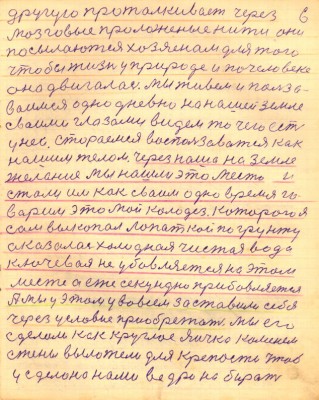 другую проталкивает через 6
мозговые проложеные нити они
посылаются хозяенам для того
чтобы жизнь у природе и по человеке
она двигалась. Мы живем и польз-
ваимся одно дневно на нашей земле
сваими глазами видем то чего есть
у нее, стораемся воспользоватся как
нашим телом, через наша на земле
желание Мы нашли это место и
стали им как сваим одно время га-
варим это мой колодез. Которого я
сам выкопал лопаткой по грунту
аказалась холодная чистая вода
ключевая не убовляется на этом
месте а еже секундно прибовляется
А мы у этом у во всем заставили себя
через условие приобретать. Мы его
сделали как круглое яичко каменем
стены вылотем для крепость чтоб
у сделоно нами ведро на бирать